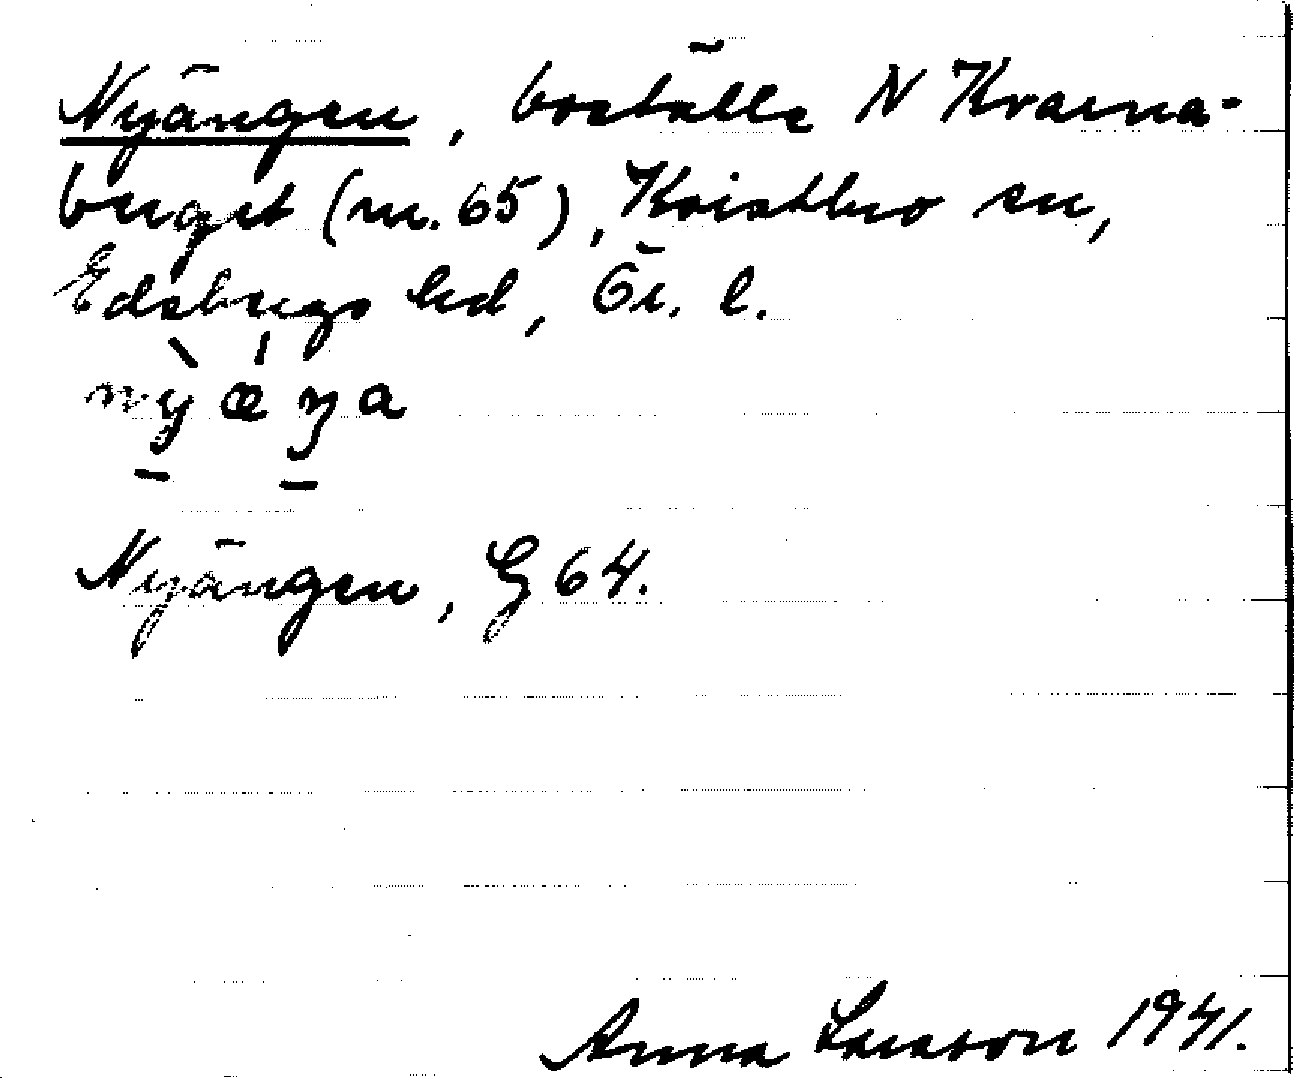 Nyängen, boställe N Kvarna-
berget (nr. 65), Kvistbro sn,
Edsbergs hd, Ör. l.
nỳǽŋa
Nyängen, G 64.
Anna Larsson 1941.